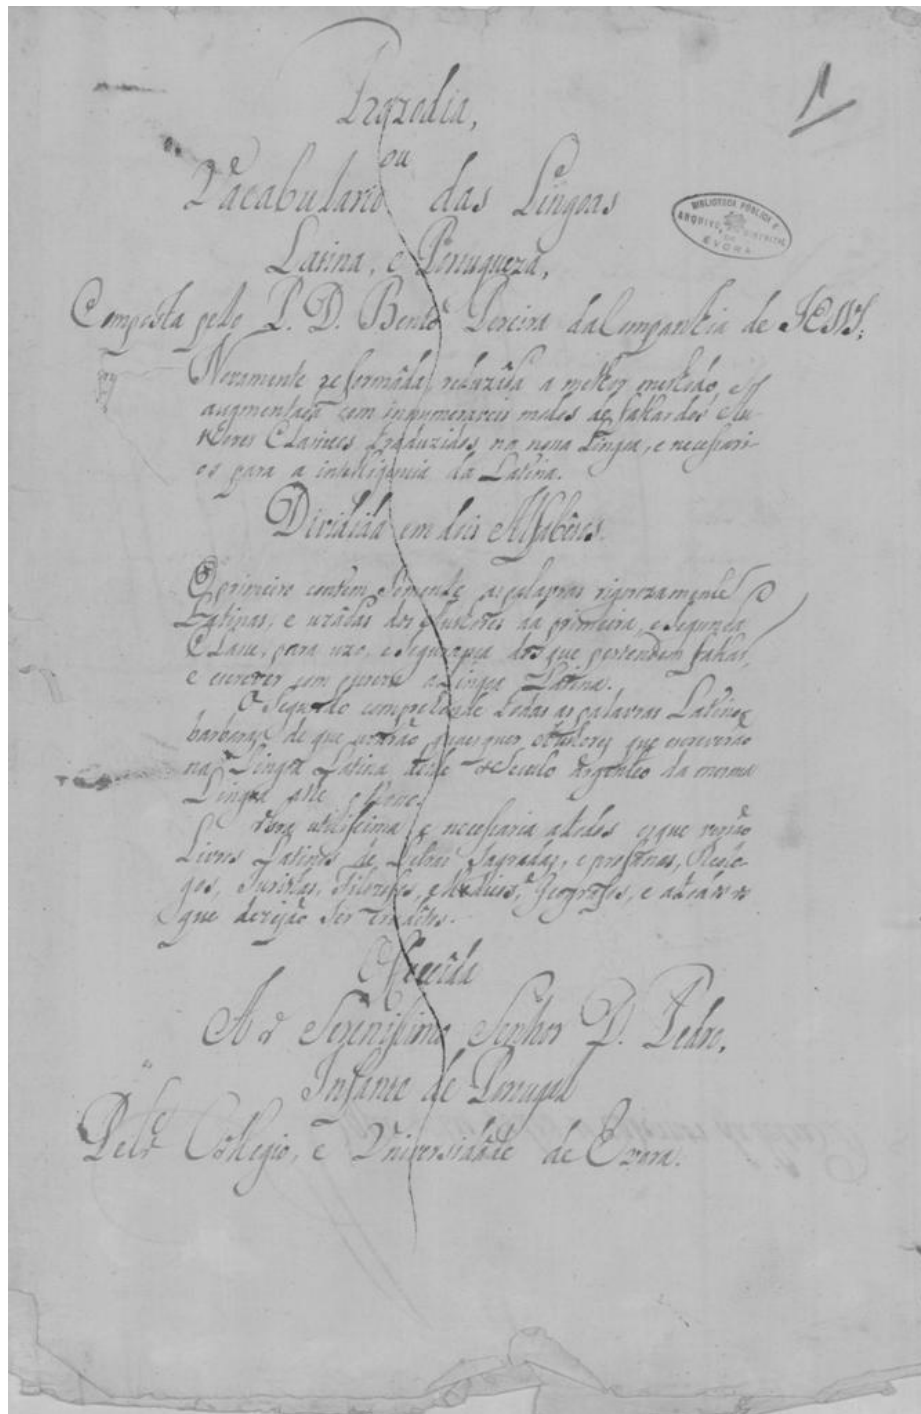 1
Prozodia,
ou
Vocabulario das Lingoas
Latina, e Portugueza,
BIBLIOTECA PÚBLICA E
ARQUIVO DISTRITAL
DE
EVORA
Composta pelo P. D. Bento Pereira da Companhia de JESUS;
Novamente reformáda, reduzida a melhor methodo, e
augmentada com innumeraveis modos de fallar dos Au-
thores Classicos traduzidos na nossa Lingua, e necessari-
os para a intelligencia da Latina.
Dividida em dois Alfabétos.
O primeiro contem somente as palavras rigorozamente
Latinas, e uzádas dos Authores da primeira, e segunda
Classe, para uzo, e segurança dos que pertendem fallar,
e escrever com a Lingua Latina.
O Segundo comprehende todas as palavras Latino
barbaras de que uzarão quaesquer Authores que escreverão
na Lingua Latina desde o Seculo argenteo da mesma
Lingua athe o
Obra utilissima e necessaria a todos os que
Livros Latinos de Letras Sagradas, e profanas, Theolo-
gos, Juristas, Filozofos, e Medicos, Geografos, e a todos os
que dezejão ser eruditos.
Offerecida
Ao Serenissimo Senhor D. Pedro,
Infante de Portugal
Pelo Collegio, e Universidade de Evora.